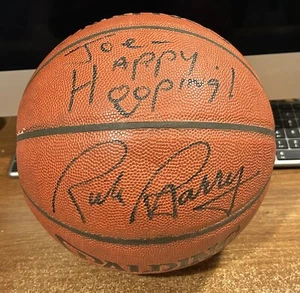 Joe-
Happy
Hooping!
Rick Barry
SPALDING